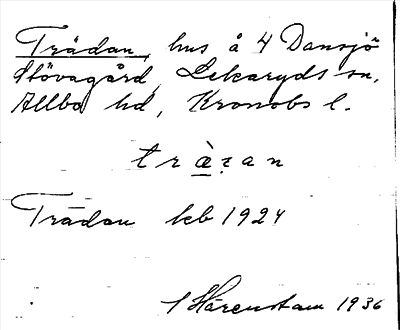 Trädan, hus å 4 Dansjö
Stövagård, Lekaryds sn.
Allbo hd, Kronobs l.
tràẓan
Trädan kb 1924
Härenstam 1936